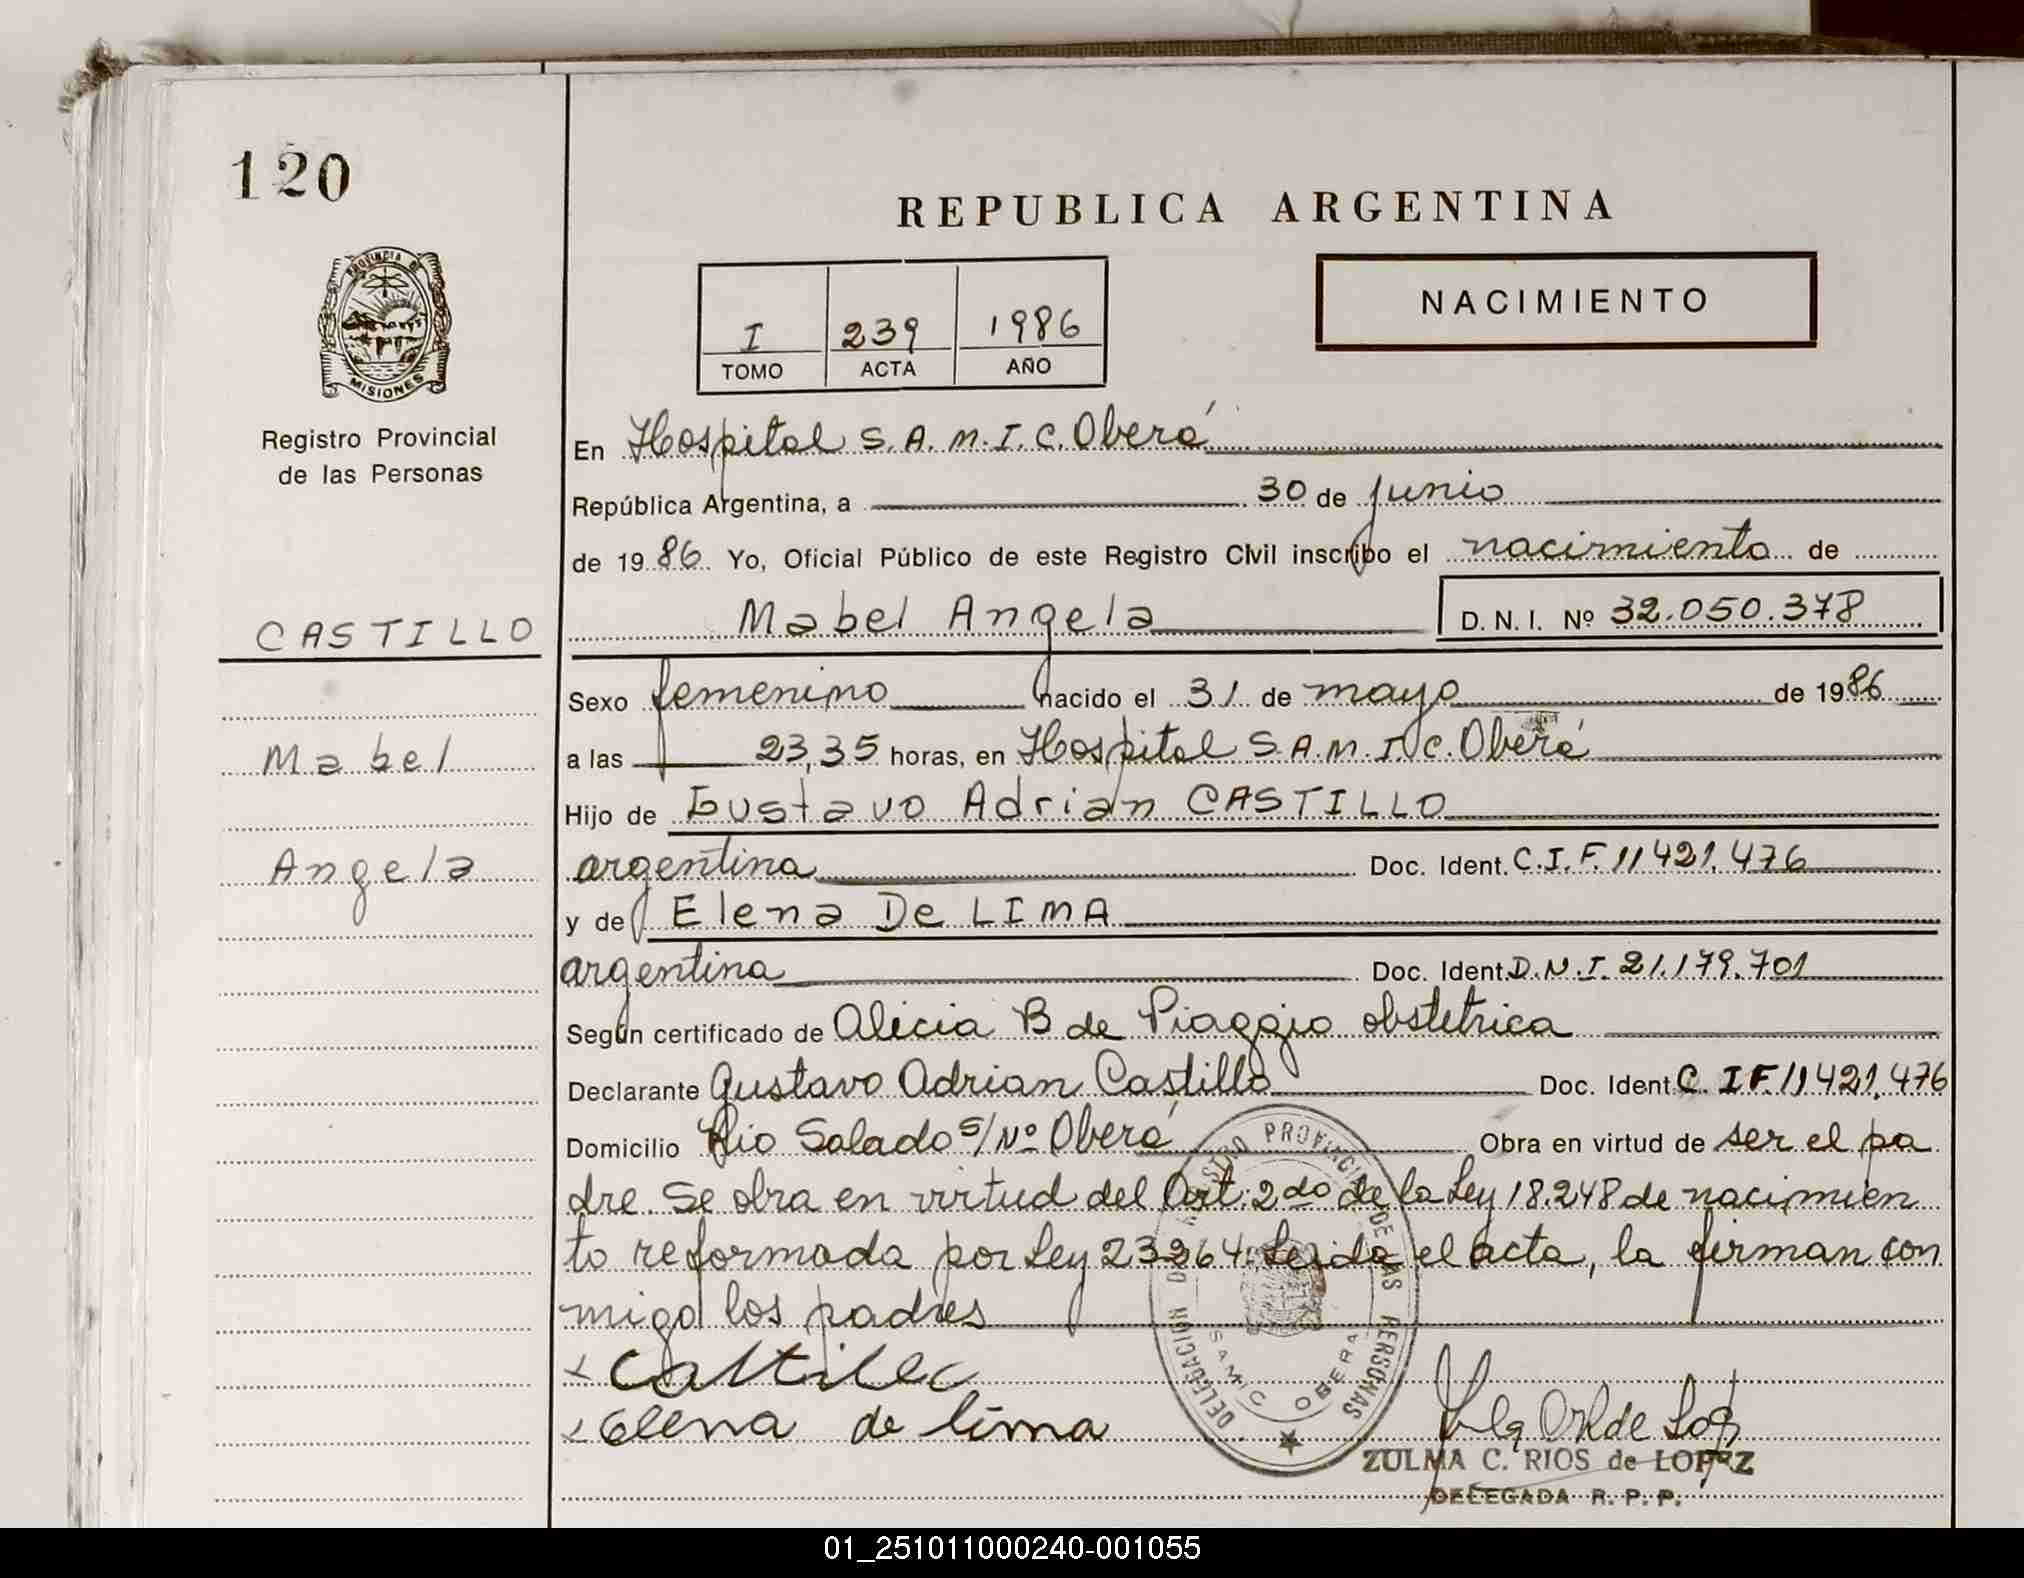 120
REPUBLICA ARGENTINA
PROVINCIA DE
MISIONES
Registro Provincial
de las Personas
I 239 1986
TOMO ACTA AÑO
NACIMIENTO
En Hospital S.A.M.I.C. Oberá
República Argentina, a 30 de junio
de 1986 Yo, Oficial Público de este Registro Civil inscribo el nacimiento de
CASTILLO
Mabel Angela D.N.I. Nº 32.050.378
Sexo femenino nacido el 31 de mayo de 1986
Mabel
a las 23,35 horas, en Hospital S.A.M.I.C. Oberá
Hijo de Gustavo Adrian CASTILLO
Angela
argentina Doc. Ident. C.I.F. 11421.476
y de Elena De LIMA
argentina Doc. Ident. D.N.I. 21.179.701
Según certificado de Alicia B de Piaggio obstetrica
Declarante Gustavo Adrian Castillo Doc. Ident. C.I.F. 11421.476
Domicilio Rio Salado s/Nº Oberá Obra en virtud de ser el pa
dre. Se obra en virtud del Art: 2do de la Ley 18.248 de nacimien
to reformada por Ley 23264. Leida el acta, la firman con
migo los padres
Castillo
Elena de lima
DELEGACION REGISTRO PROVINCIAL DE LAS PERSONAS
SAMIC OBERA
ZULMA C. RIOS de LOPEZ
DELEGADA R. P. P.
01_251011000240-001055